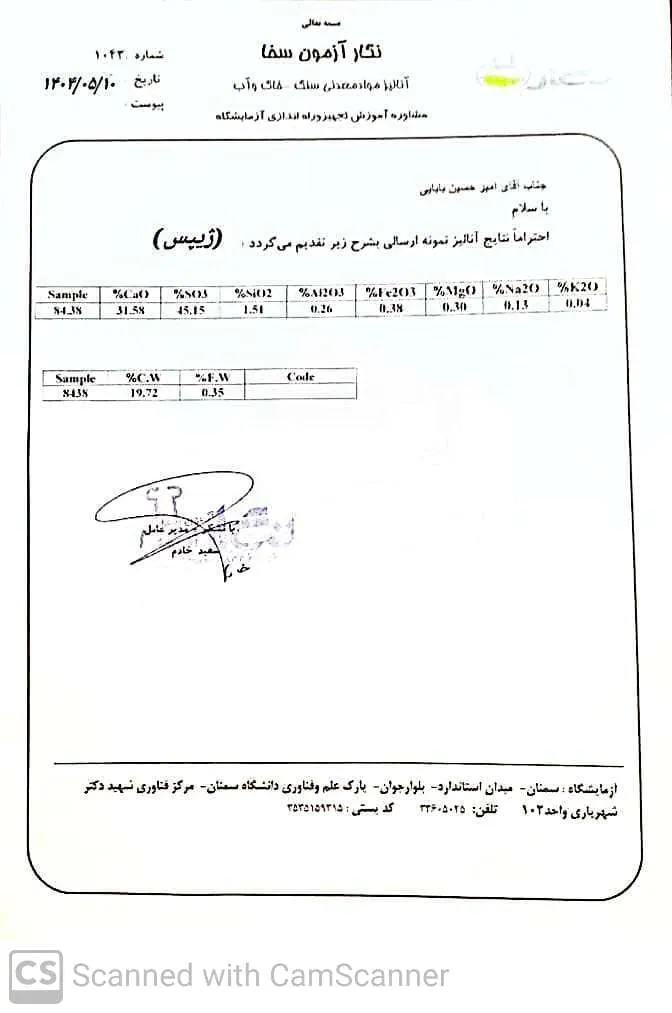 بسمه تعالی
نگار آزمون سفا
آنالیز مواد معدنی سنگ - خاک و آب
مشاوره آموزش تجهیز و راه اندازی آزمایشگاه
شماره : ۱۰۴۳
تاریخ ۱۴۰۴/۰۵/۱۰
پیوست :
جناب آقای امیر حسین بابایی
با سلام
احتراماً نتایج آنالیز نمونه ارسالی بشرح زیر تقدیم می گردد : (ژیپس)
Sample %CaO %SO3 %SiO2 %Al2O3 %Fe2O3 %MgO %Na2O %K2O
8438 31.58 45.15 1.51 0.26 0.38 0.30 0.13 0.04
Sample %C.W %F.W Code
8438 19.72 0.35
با تشکر - مدیر عامل
سعید خادم
آزمایشگاه : سمنان- میدان استاندارد- بلوارجوان- پارک علم وفناوری دانشگاه سمنان- مرکز فناوری شهید دکتر
شهریاری واحد۱۰۲ تلفن: ۳۳۶۰۵۰۲۵ کد پستی : ۳۵۳۵۱۵۹۳۱۵
CS Scanned with CamScanner